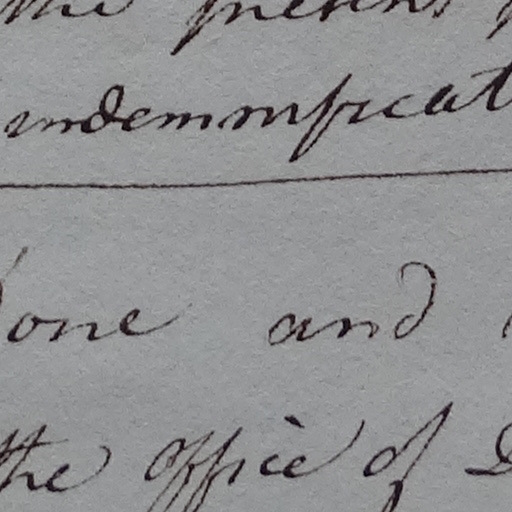 the present
indemnificat
done and
the office of